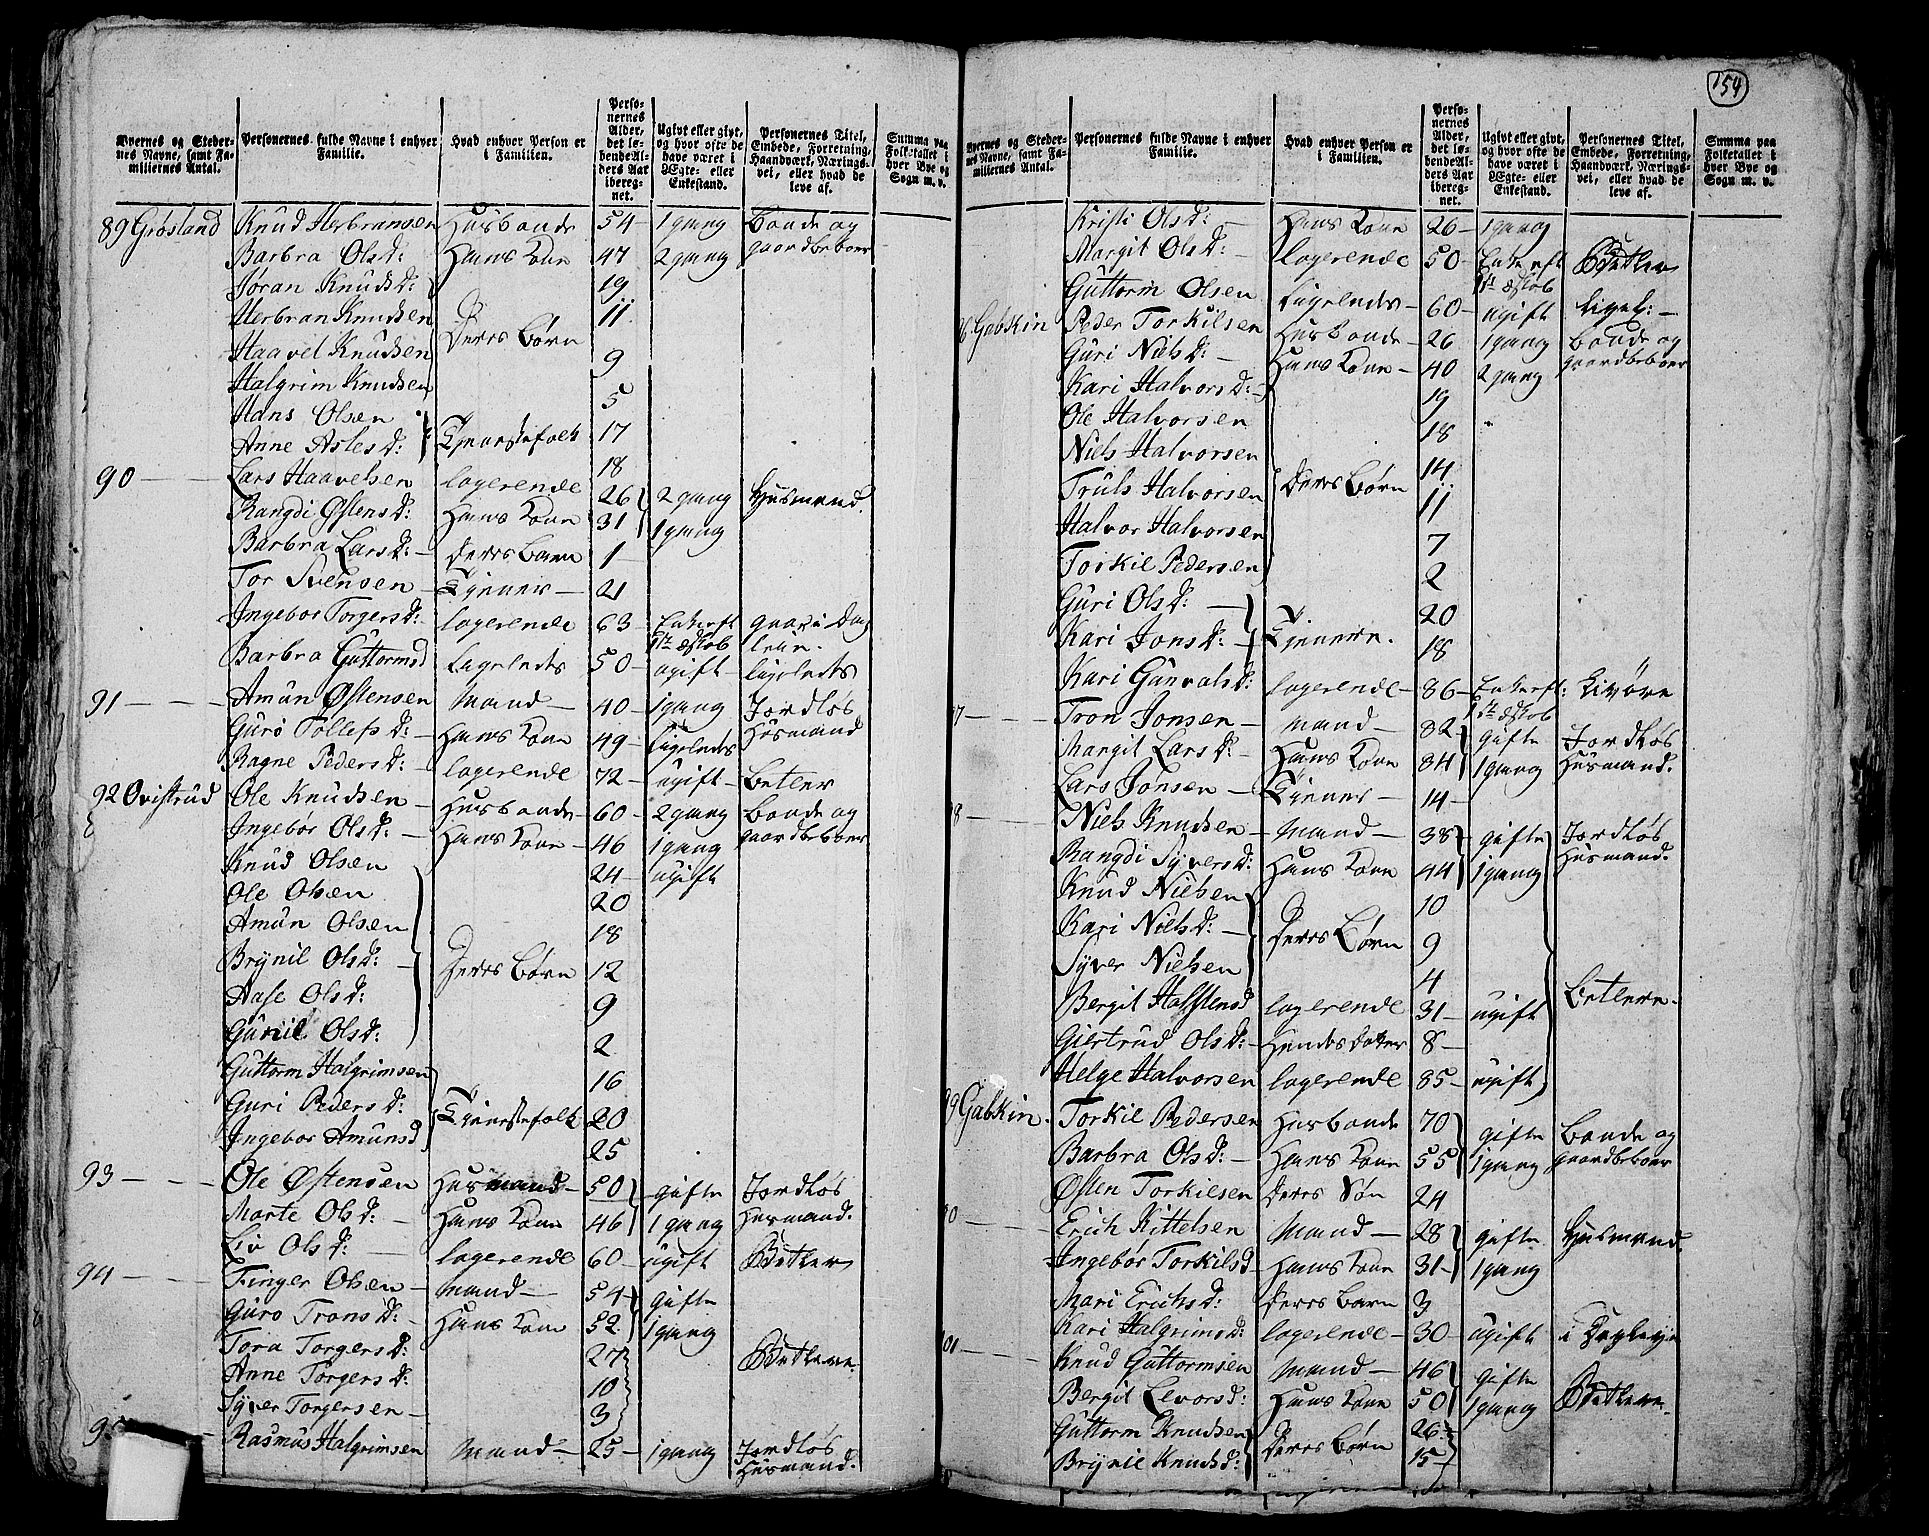 154
Byernes og Steder-
nes Navne, samt Fa-
miliernes Antal.
Personernes fulde Navne i enhver
Familie.
Hvad enhver Person er
i Familien.
Perso-
nernes
Alder,
det lø-
bende Al-
ders Aar
ibereg-
net.
Ugivt eller givt,
og hvor ofte de
have været i
Ægte- eller
Enkestand.
Personernes Titel,
Embede, Forretning,
Haandværk, Nærings-
vei, eller hvad de
leve af.
Summa paa
Folketallet i
hver Bye og
Sogn m. v.
89 Grøsland Knud Herbransen Husbonde 54 1 gang Bonde og
Barbra Olsd: Hans Kone 47 2 gang gaardbeboer
Jøran Knudsd: 19
Herbran Knudsen 11
Haavel Knudsen Deres Børn 9
Halgrim Knudsen 5
Hans Olsen 17
Anne Aslesd: Tjenestefolk 18
90 Lars Haavelsen logerende 26 2 gang Husmand.
Rangdi Østensd: Hans Kone 31 1 gang
Barbra Larsd: Deres Barn 1
Tor Svensen Tjener 21
Ingebor Torgersd: logerende 63 Enke eft
1te Ægtskab
Barbra Guttormsd Ligeledes 50 ugift ligeledes
91 Amun Østensen Mand 40 1 gang Jordløs
Guro Tollefsd: Hans Kone 49 ligeledes Husmand
Ragne Pedersd: logerende 72 ugift Betler
92 Ovistrud Ole Knudsen Husbonde 60 2 gang Bonde og
Ingebør Olsd: Hans Kone 46 1 gang gaardbeboer
Knud Olsen 24 ugift
Ole Olsen 20
Amun Olsen 18
Brynil Olsd: Deres Børn 12
Aase Olsd: 9
Gunil Olsd: 2
Guttorm Halgrimsen 16
Guri Pedersd: Tjenestefolk 20
Ingebor Amunsd 25
93 Ole Østensen Husmand 50 gifte Jordløs
Marte Olsd: Hans Kone 46 1 gang Husmand.
Liv Olsd: logerende 60 ugift Betler
94 Finger Olsen Mand 54 gifte
Guro Tronsd: Hans Kone 52 1 gang
Tora Torgersd: 27 Betlere
Anne Torgersd: 10
Syver Torgersen 3
95 Rasmus Halgrimsen Mand 25 1 gang Jordløs
Husmand.
Byernes og Steder-
nes Navne, samt Fa-
miliernes Antal.
Personernes fulde Navne i enhver
Familie.
Hvad enhver Person er
i Familien.
Perso-
nernes
Alder,
det lø-
bende Al-
ders Aar
ibereg-
net.
Ugivt eller givt,
og hvor ofte de
have været i
Ægte- eller
Enkestand.
Personernes Titel,
Embede, Forretning,
Haandværk, Nærings-
vei, eller hvad de
leve af.
Summa paa
Folketallet i
hver Bye og
Sogn m. v.
Kristi Olsd: Hans Kone 26 1 gang
Margit Olsd: logerende 50 Enke eft Betler
1te Ægtskab
Guttorm Olsen Ligeledes 60 ugift ligel:
6 Gabskin Peder Torkilsen Husbonde 26 1 gang Bonde og
Guri Nielsd: Hans Kone 40 2 gang gaardbeboer
Kari Halvorsd: 19
Ole Halvorsen 18
Niels Halvorsen 14
Truls Halvorsen Deres Børn 11
Halvor Halvorsen 7
Torkil Pedersen 2
Guri Olsd: 20
Kari Jonsd: Tjenere. 18
Kari Gunvalsd: logerende 86 Enke eft:
1te Ægtskab
7 Tron Jonsen Mand 82 gifte Jordløs
Margit Larsd: Hans Kone 84 1 gang Husmand.
Lars Jonsen Tjener 14
8 Niels Knudsen Mand 38 gifte Jordløs
Rangdi Syversd: Hans Kone 44 1 gang Husmand.
Knud Nielsen 10
Kari Nielsd: Deres Børn 9
Syver Nielsen 4
Bergit Halstensd logerende 31 ugift Betlere.
Giertrud Olsd: Hendes Datter 8
Helge Halvorsen logerende 85 ugift
99 Gabskin. Torkil Pedersen Husbonde 70 gifte Bonde og
Barbra Olsd: Hans Kone 55 1 gang gaardbeboer
Østen Torkilsen Deres Søn 24
00 Erich Kittelsen Mand 28 gifte Husmand.
Ingebør Torkilsd Hans Kone 31 1 gang
Mari Erichsd: Deres Barn 3
Kari Halgrimsd: logerende 30 ugift
01 Knud Guttormsen Mand 46 gifte
Bergit Levorsd: Hans Kone 50 1 gang Betlere.
Guttorm Knudsen 26
Brynil Knudsd: Deres Børn 15